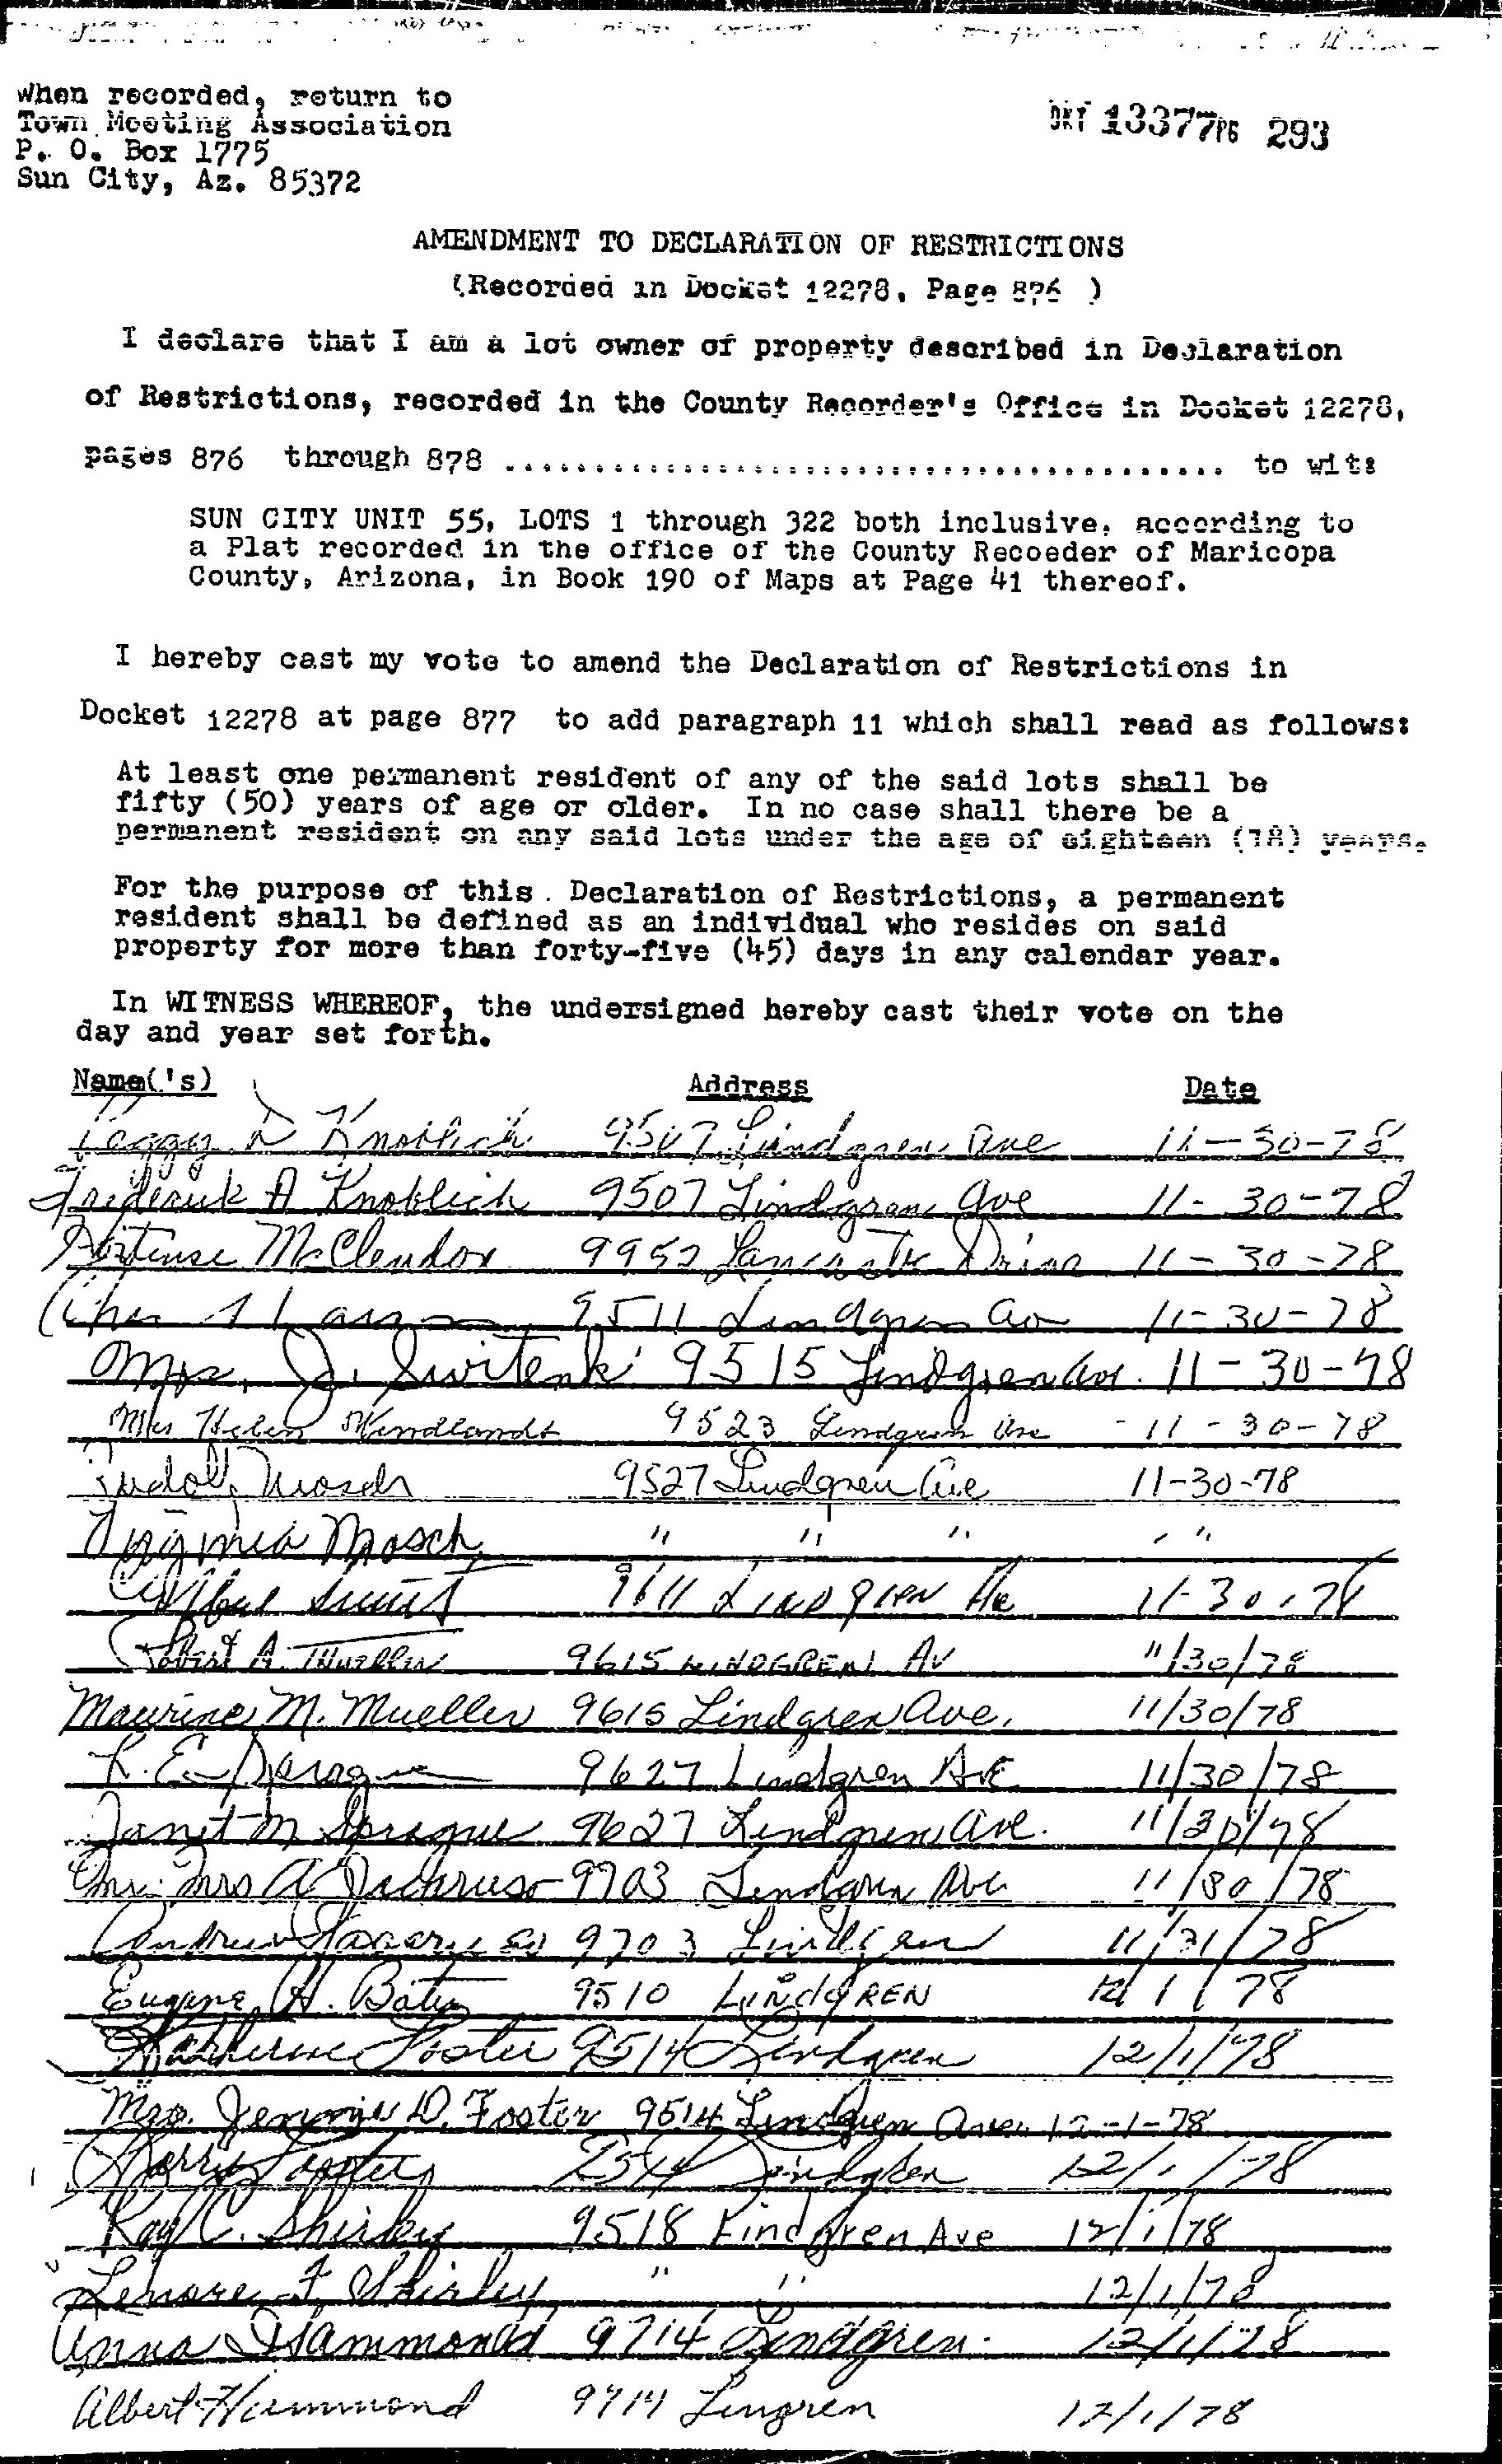 When recorded, return to
Town Meeting Association
P. O. Box 1775
Sun City, Az. 85372
DKT 13377 PG 293
AMENDMENT TO DECLARATION OF RESTRICTIONS
(Recorded in Docket 12278, Page 876 )
I declare that I am a lot owner of property described in Declaration
of Restrictions, recorded in the County Recorder's Office in Docket 12278,
pages 876 through 878 ........................................ to wit:
SUN CITY UNIT 55, LOTS 1 through 322 both inclusive, according to
a Plat recorded in the office of the County Recoeder of Maricopa
County, Arizona, in Book 190 of Maps at Page 41 thereof.
I hereby cast my vote to amend the Declaration of Restrictions in
Docket 12278 at page 877 to add paragraph 11 which shall read as follows:
At least one permanent resident of any of the said lots shall be
fifty (50) years of age or older. In no case shall there be a
permanent resident on any said lots under the age of eighteen (18) years.
For the purpose of this . Declaration of Restrictions, a permanent
resident shall be defined as an individual who resides on said
property for more than forty-five (45) days in any calendar year.
In WITNESS WHEREOF, the undersigned hereby cast their vote on the
day and year set forth.
Name('s) Address Date
Peggy D Knoblich 9507 Lindgren Ave 11-30-78
Frederick A Knoblich 9507 Lindgren Ave 11-30-78
Hortense McClendon 9952 Drive 11-30-78
9511 Lindgren Av 11-30-78
Mrs. J. Switenki 9515 Lindgren Ave. 11-30-78
Mrs Helen Wendlandt 9523 Lindgren Ave - 11-30-78
Rudolf Mosch 9527 Lindgren Ave 11-30-78
Virginia Mosch " " " " "
9611 LINDGREN Ave 11-30-78
Robert A. Mueller 9615 LINDGREN AV 11/30/78
Maurine M. Mueller 9615 Lindgren Ave. 11/30/78
K. E. Sprague 9627 Lindgren Ave 11/30/78
Janet M Sprague 9627 Lindgren Ave. 11/30/78
Mr. Mrs A 9703 Lindgren Ave 11/30/78
Andrew 9703 Lindgren 11/31/78
Eugene H. Bates 9510 LINDGREN 12/1/78
Katherine Foster 9514 Lindgren 12/1/78
Mrs. Jennie D. Foster 9514 Lindgren Ave. 12-1-78
Harry Foster 9514 Lindgren 12/1/78
Ray C. Shirley 9518 Lindgren Ave 12/1/78
Lenore F. Shirley " " 12/1/78
Anna Hammond 9714 Lindgren. 12/1/78
Albert Hammond 9714 Lingren 12/1/78